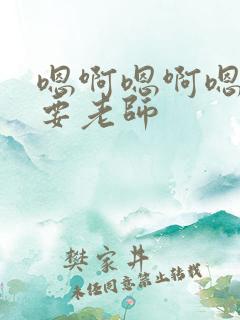 嗯啊嗯啊嗯
要老師
樊家井
未经同意禁止转载